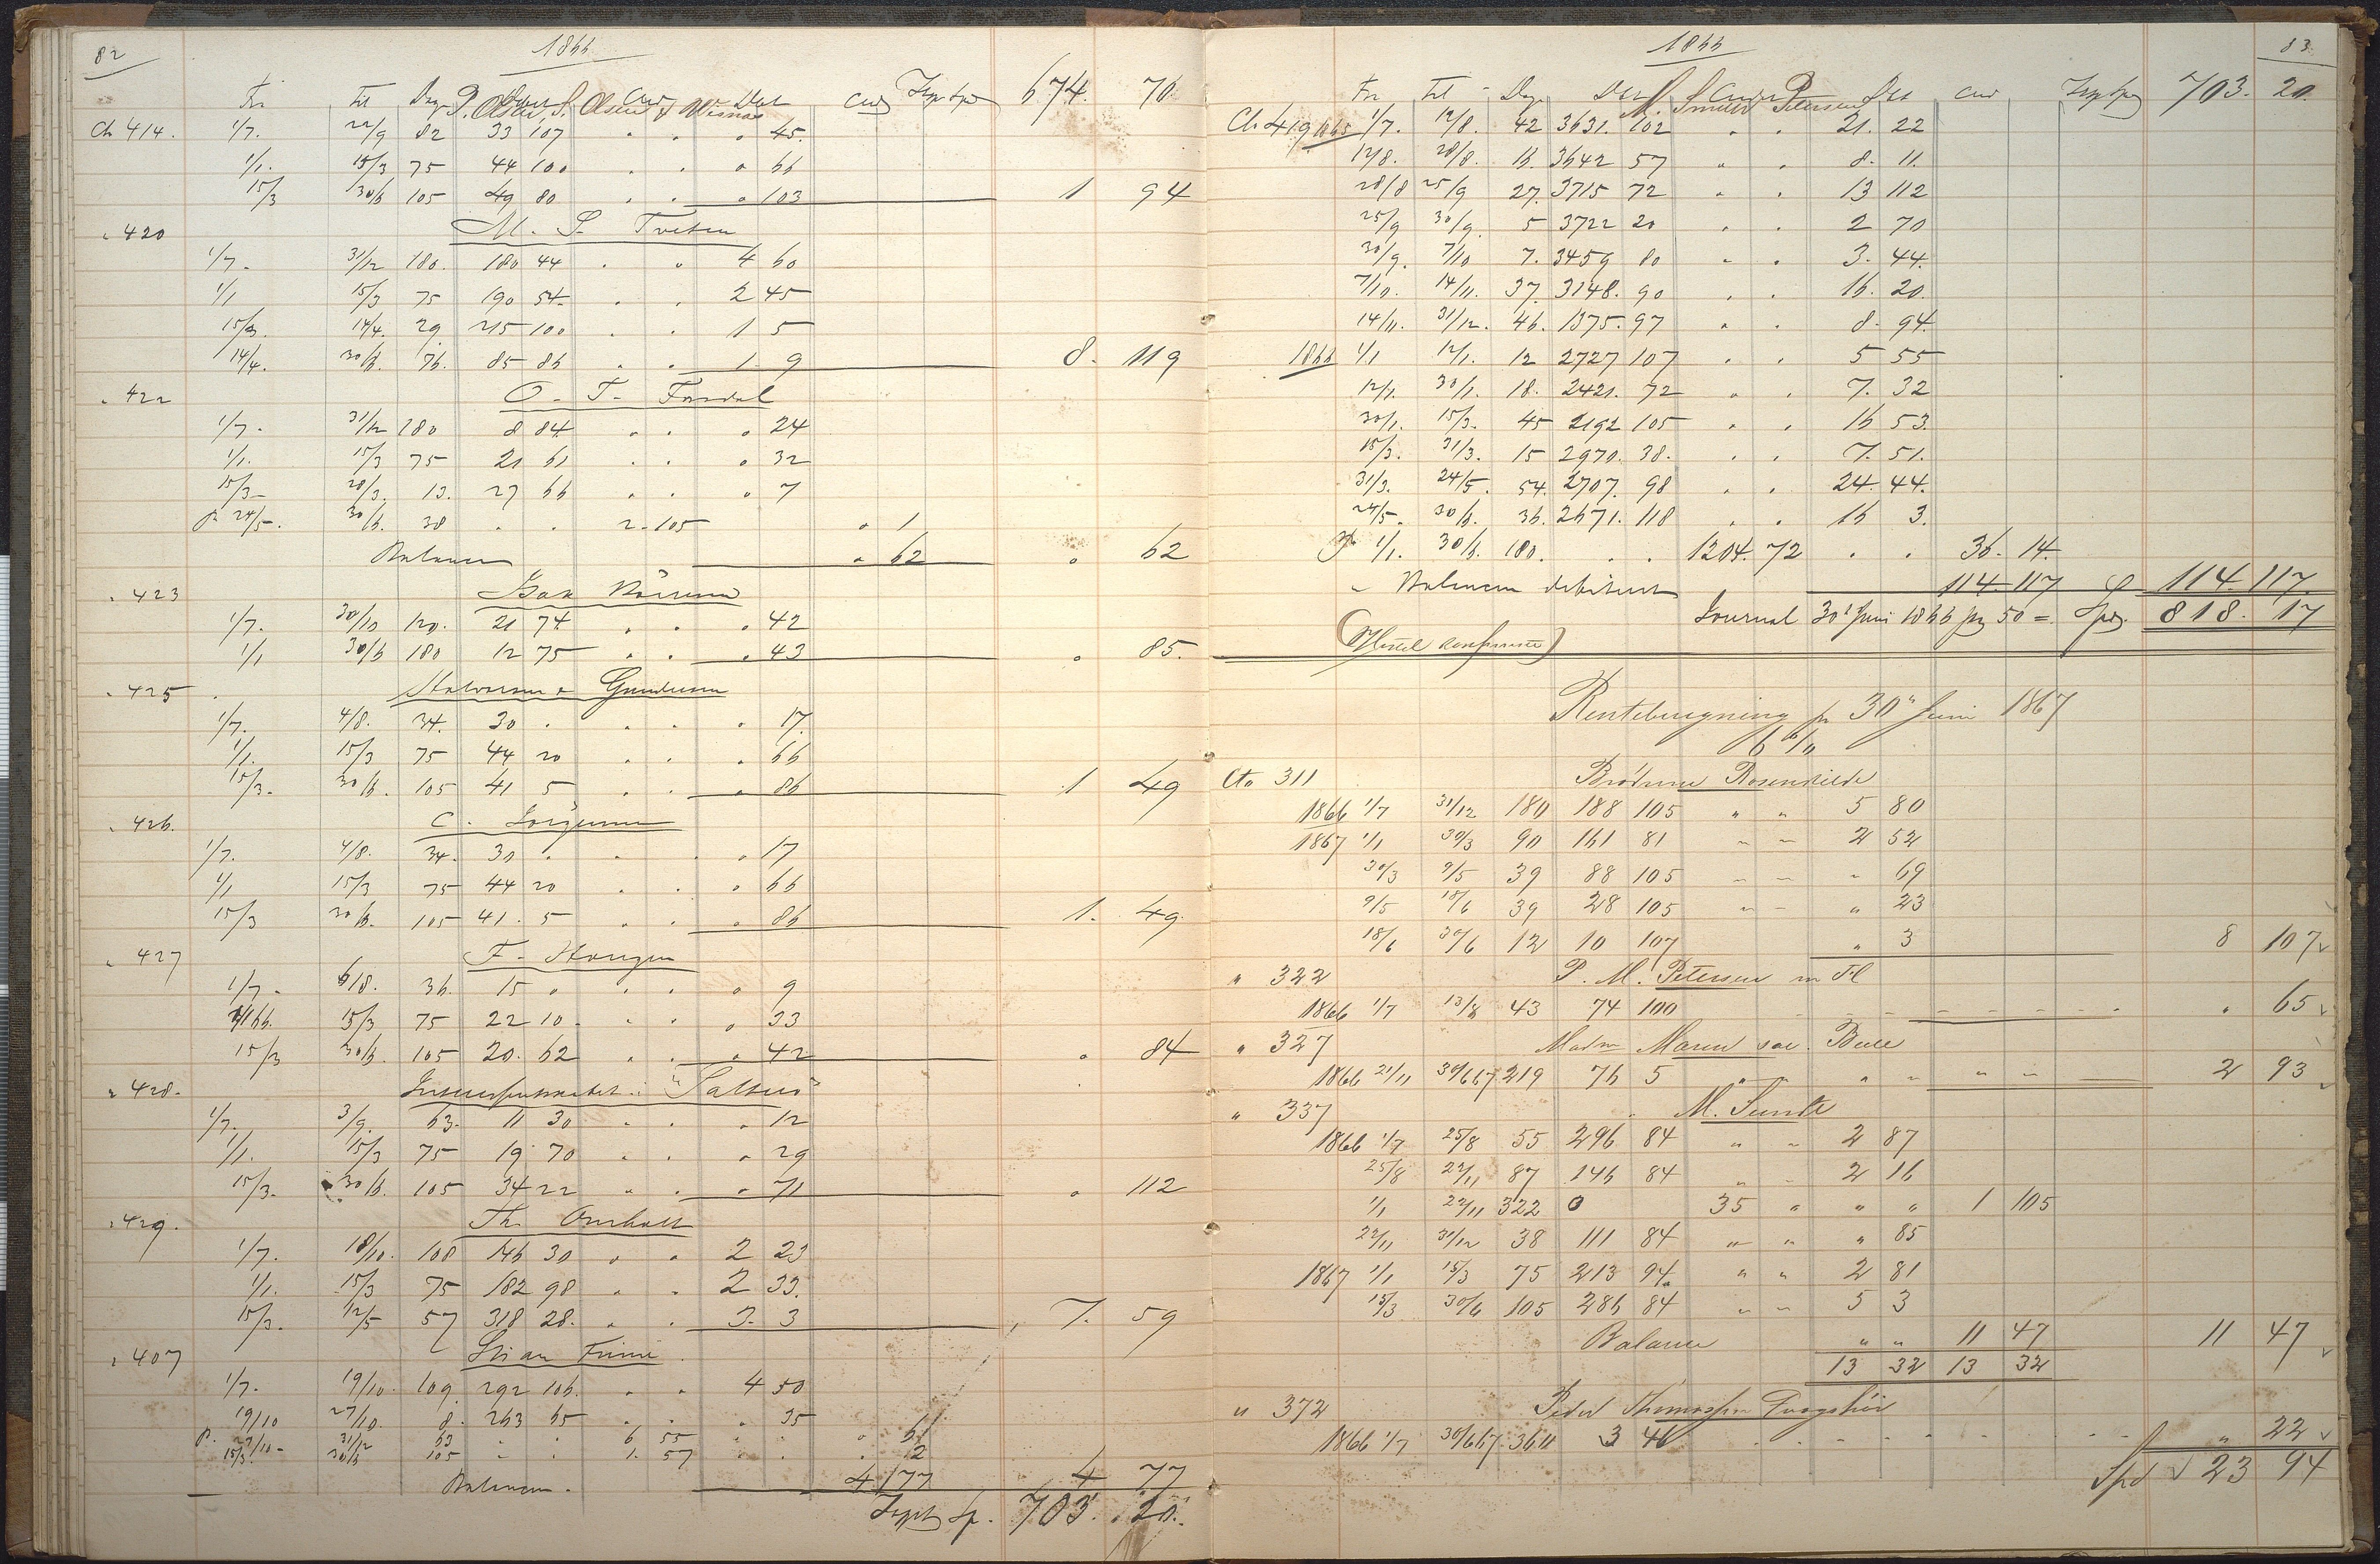 82
1866
Fra Til Dage Debet Cred Det Cred Transp Spd 674. 70
P. Olsen, S. Olsen & Visnæs
Ch 414. 1/7. 22/9 82 33 107 " " " 45.
1/1. 15/3 75 44 100 " " " 66
15/3 30/6 105 49 80 " " " 103 1 94
" 420 M. S. Tveten
1/7. 31/12 180. 180 44 " " 4 60
1/1 15/3 75 190 54. " " 2 45
15/3. 14/4. 29. 215 100 " " 1 5
14/4. 30/6. 76. 85 86 " " 1. 9 8. 119
" 422 O. T.
1/7. 31/12 180 8 84 " " " 24
1/1. 15/3 75 21 61 " " " 32
15/3 28/3. 13. 27 66 " " " 7
p 24/5. 30/6. 38 " " 2. 105 " 1
Balancen " 62 " 62
" 423
1/7. 30/10 120. 21 74 " " " 42
1/1 30/6 180 12 75 " " " 43 " 85.
" 425 Halvorsen & Gundersen
1/7. 4/8. 34. 30 " " " " 17.
1/1. 15/3 75 44 20 " " " 66
15/3. 30/6. 105 41 5 " " " 86 1 49
" 426. C. Jörgensen
1/7. 4/8. 34. 30 " " " " 17
1/1 15/3 75 44 20 " " " 66
15/3 30/6. 105 41. 5 " " " 86 1. 49.
" 427 F.
1/7. 6/8. 36. 15 " " " " 9
1/1 66. 15/3 75 22 10 " " " 33
15/3 30/6. 105 20. 62 " " " 42 " 84
" 428. Interessentskabet i "Saltens"
1/7. 3/9. 63. 11 30 " " " 12
1/1. 15/3 75 19 70 " " " 29
15/3. 30/6. 105 34 22 " " " 71 " 112
" 429. Th. Omholt
1/7. 18/10. 108 146 30 " " 2 23
1/1. 15/3 75 182 98 " " 2 33.
15/3. 12/5 57 318 28. " " 3. 3 7. 59
" 407
1/7. 19/10. 109. 292 106. " " 4 50
19/10 27/10. 8. 263 65 " " " 35
p. 27/10 31/12 63 " " 6 55 " " " 6
15/3. 30/6 105 " " 1. 57 " " " 2
Balancen. 4 77 4 77
Transpt Sp. 703. 20.
83.
1866
Fra Til Dage Det Cred Det Cred Transp Spd 703. 20.
N. Smith Petersen
Ch 419 1865 1/7. 12/8. 42 3631. 102 " " 21. 22
12/8. 28/8. 16. 3642 57 " " 8. 11.
28/8 25/9 27. 3715 72 " " 13 112
25/9 30/9. 5 3722 20 " " 2 70
30/9. 7/10 7. 3459 80 " " 3. 44.
7/10. 14/11. 37. 3148. 90 " " 16. 20.
14/11. 31/12. 46. 1375. 97 " " 8. 94.
1866 1/1 12/1. 12 2727 107 " " 5 55
12/1. 30/1. 18. 2421. 72 " " 7. 32
30/1. 15/3. 45 2192 105 " " 16 53.
15/3. 31/3. 15 2970. 38. " " 7. 51.
31/3. 24/5. 54. 2707. 98 " " 24. 44.
24/5. 30/6. 36. 2671. 118 " " 16 3.
1/1. 30/6. 180. " " 1204. 72 " " 36. 14.
Balancen debiteret 114. 117 114. 117.
Journal 30t Juni 1866 pag 50 = Spd. 818. 17
Renteberegning pr 30" Juni 1867
6 %
Cto 311 Brödrene Rosenkilde
1866 1/7 31/12 180 188 105 " " 5 80
1867 1/1 30/3 90 161 81 " " 2 52
30/3 9/5 39 88 105 " " " 69
9/5 18/6 39 28 105 " " " 23
18/6 30/6 12 10 107 " 3 8 107
" 322 P. M. Petersen
1866 1/7 13/8 43 74 100 " 65
" 327 Madm Maren
1866 21/11 30/6 67 219 76 5 " " " " " " 2 93
" 337 M. Sundt
1866 1/7 25/8 55 296 84 " " 2 87
25/8 22/11 87 146 84 " " 2 16
1/1 22/11 322 0 35 " " " 1 105
22/11 31/12 38 111 84 " " " 85
1867 1/1 15/3 75 213 94 " " 2 81
15/3 30/6 105 286 84 " " 5 3
Balance " " 11 47 11 47
13 32 13 32
" 372 Peder Thomassen
1866 1/7 30/6 67. 360 3 46 " 22
Spd 23 94